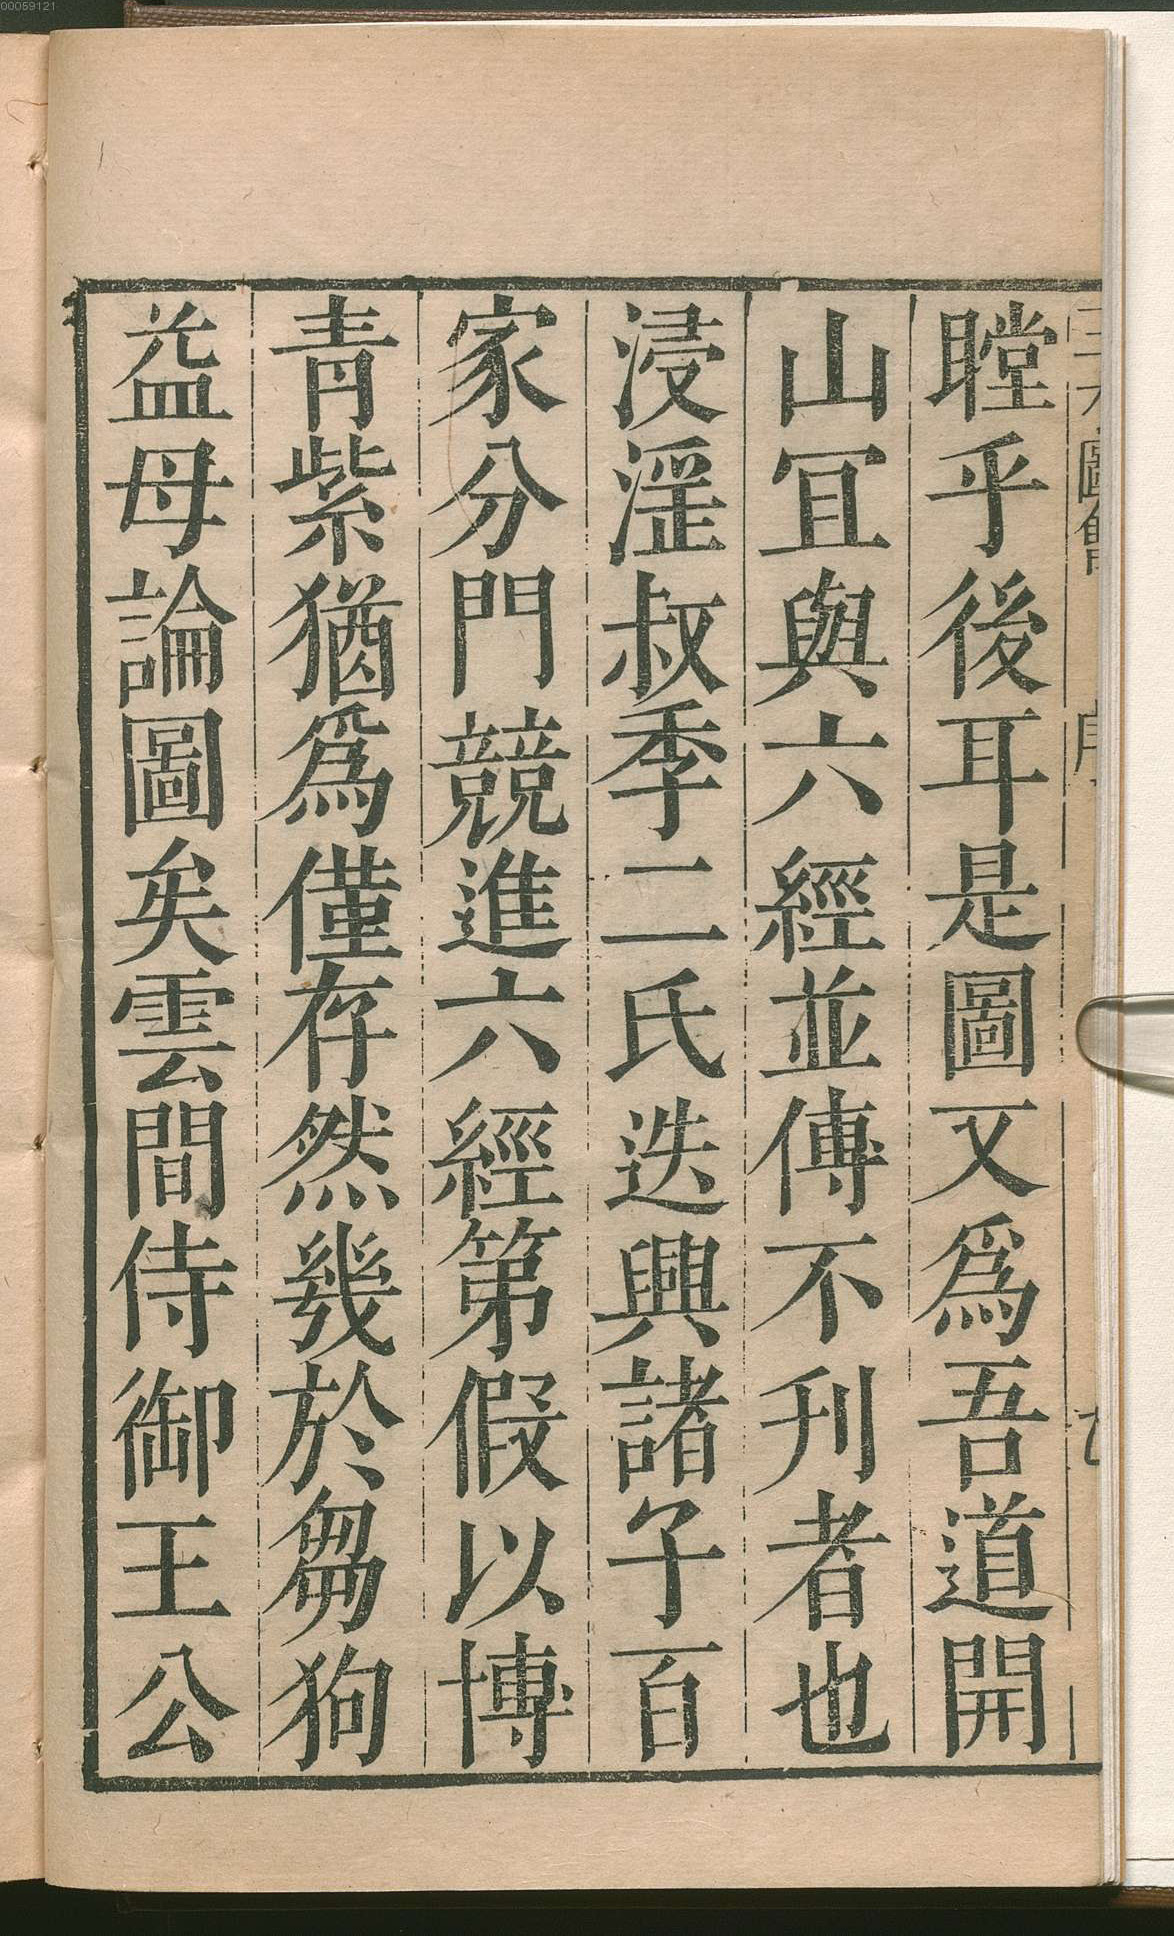 00059121
瞠乎後耳是圖又爲吾道開
山宜與六經並傳不刋者也
浸淫叔季二氏迭興諸子百
家分門競進六經第假以博
青紫猶爲僅存然幾於芻狗
益母論圖矣雲間侍御王公